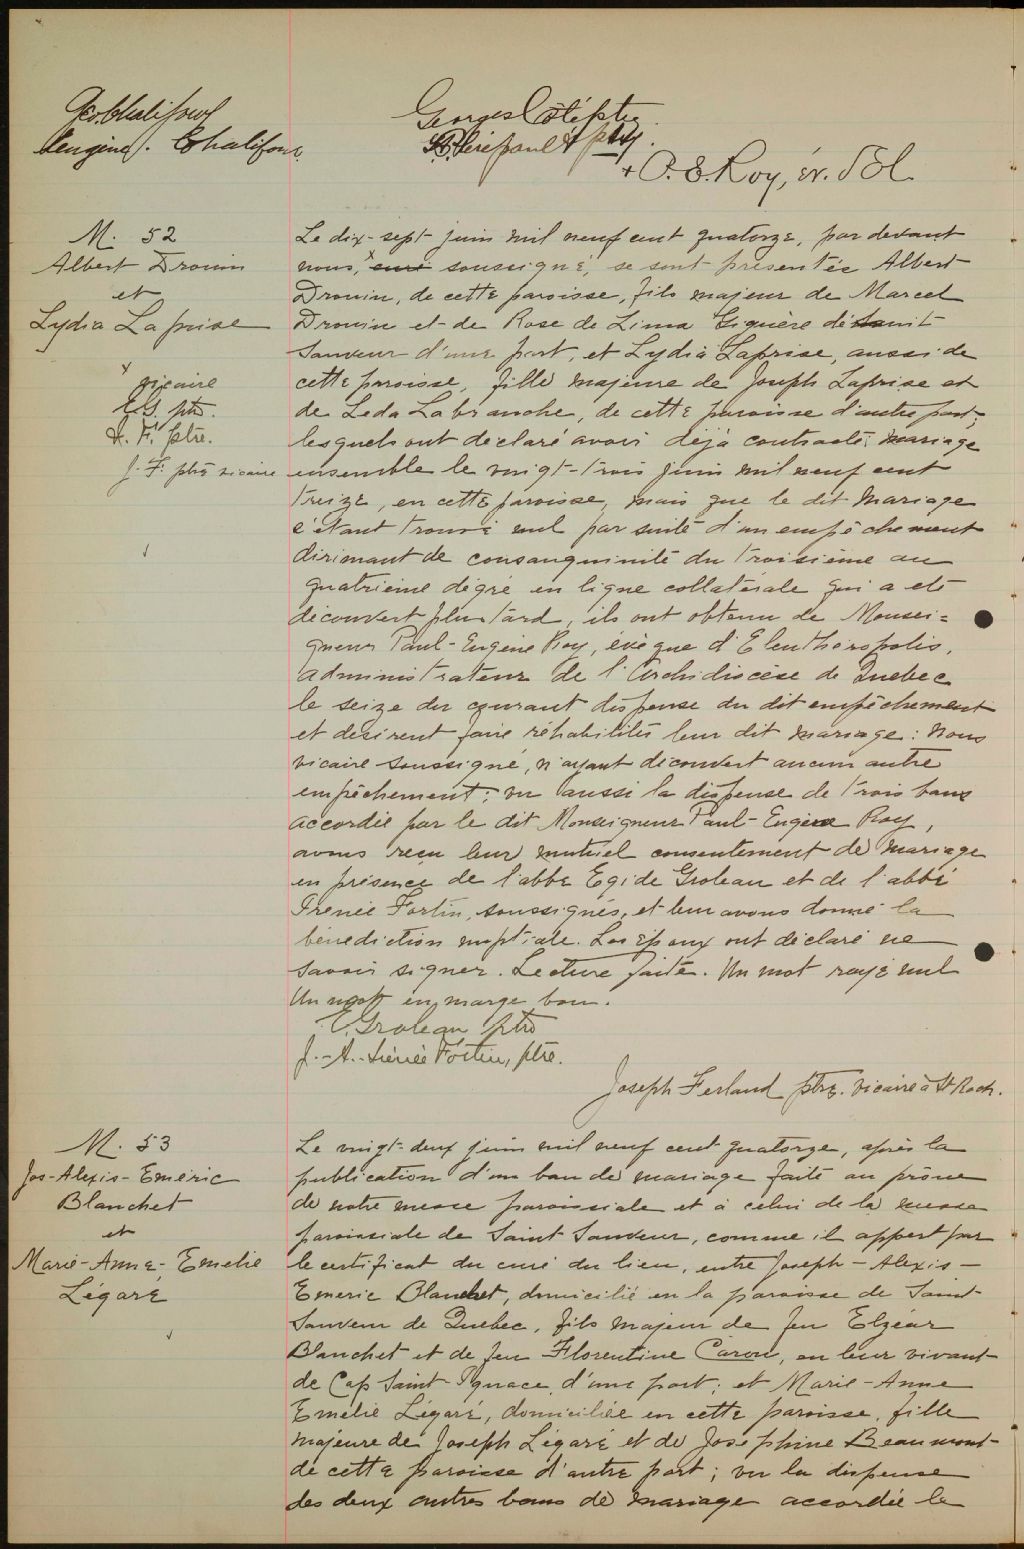 Geo. Chalifour
Eugène J. Chalifour
Georges Côté ptre
ptre
+ P. E. Roy, év. d'El.
M. 52
Albert Drouin
et
Lydia Laprise
x vicaire
E G. ptre.
I. F. ptre.
J. F. ptre vicaire
Le dix-sept juin mil neuf cent quatorze, par devant
nous, x curé soussigné, se sont présentés Albert
Drouin, de cette paroisse, fils majeur de Marcel
Drouin et de Rose de Lima Giguère de Saint
Sauveur d'une part, et Lydia Laprise, aussi de
cette paroisse, fille majeure de Joseph Laprise et
de Leda Labranche, de cette paroisse d'autre part;
lesquels ont déclaré avoir déjà contracté mariage
ensemble le vingt-trois juin mil neuf cent
treize, en cette paroisse, mais que le dit mariage
s'étant trouvé nul par suite d'un empêchement
dirimant de consanguinité du troisième au
quatrième dégré en ligne collatérale qui a été
découvert plus tard, ils ont obtenu de Monsei=
gneur Paul-Eugène Roy, évêque d'Eleuthéropolis,
administrateur de l'Archidiocèse de Québec
le seize du courant dispense du dit empêchement
et désirent faire réhabiliter leur dit mariage: Nous
vicaire soussigné, n'ayant découvert aucun autre
empêchement; vu aussi la dispense de trois bans
accordée par le dit Monseigneur Paul-Eugène Roy,
avons reçu leur mutuel consentement de mariage
en présence de l'abbé Egide Groleau et de l'abbé
Irenée Fortin, soussignés, et leur avons donné la
bénédiction nuptiale. Les époux ont déclaré ne
savoir signer. Lecture faite. Un mot rayé nul
Un mot en marge bon.
E. Groleau ptre
J.-A.-Irénée Fortin, ptre.
Joseph Ferland ptre. vicaire à St Roch.
M. 53
Jos-Alexis-Emeric
Blanchet
et
Marie-Anne-Emelie
Légaré
Le vingt-deux juin mil neuf cent quatorze, après la
publication d'un ban de mariage faite au prône
de notre messe paroissiale et à celui de la messe
paroissiale de Saint Sauveur, comme il appert par
le certificat du curé du lieu, entre Joseph-Alexis-
Emeric Blanchet, domicilié en la paroisse de Saint-
Sauveur de Québec, fils majeur de feu Elzéar
Blanchet et de feu Florentine Caron, en leur vivant
de Cap Saint-Ignace, d'une part; et Marie-Anne
Emelie Légaré, domiciliée en cette paroisse, fille
majeure de Joseph Légaré et de Joséphine Beaumont
de cette paroisse d'autre part; vu la dispense
des deux autres bans de mariage accordée le